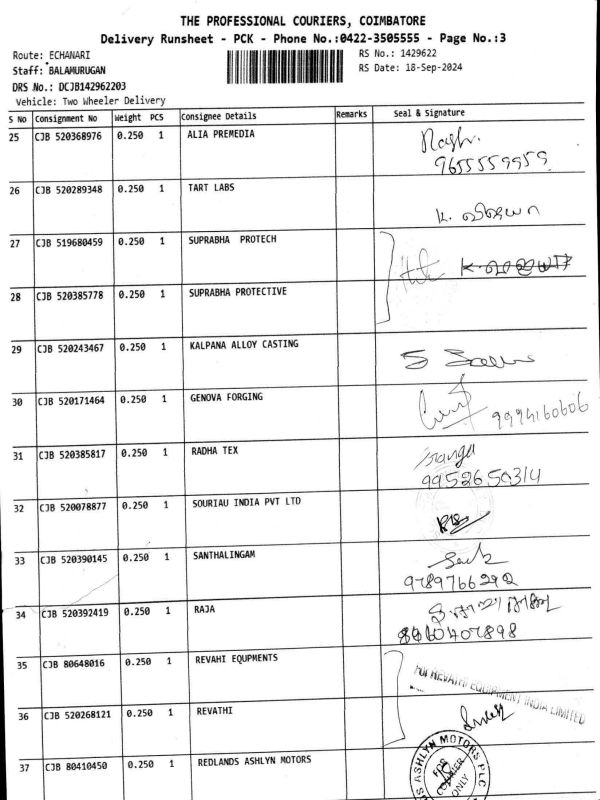 THE PROFESSIONAL COURIERS, COIMBATORE
Delivery Runsheet - PCK - Phone No.:0422-3505555 - Page No.:3
Route: ECHANARI
RS No.: 1429622
Staff: BALAMURUGAN
RS Date: 18-Sep-2024
DRS No.: DCJB142962203
Vehicle: Two Wheeler Delivery
S No Consignment No Weight PCS Consignee Details Remarks Seal & Signature
25 CJB 520368976 0.250 1 ALIA PREMEDIA
9655559959
26 CJB 520289348 0.250 1 TART LABS
27 CJB 519680459 0.250 1 SUPRABHA PROTECH
28 CJB 520385778 0.250 1 SUPRABHA PROTECTIVE
29 CJB 520243467 0.250 1 KALPANA ALLOY CASTING
30 CJB 520171464 0.250 1 GENOVA FORGING
9994160606
31 CJB 520385817 0.250 1 RADHA TEX
9952650314
32 CJB 520078877 0.250 1 SOURIAU INDIA PVT LTD
33 CJB 520390145 0.250 1 SANTHALINGAM
9789766292
34 CJB 520392419 0.250 1 RAJA
35 CJB 80648016 0.250 1 REVAHI EQUPMENTS
For REVATHI EQUIPMENT INDIA LIMITED
36 CJB 520268121 0.250 1 REVATHI
37 CJB 80410450 0.250 1 REDLANDS ASHLYN MOTORS
ASHLYN MOTORS PLC
FOR
COURIER
ONLY